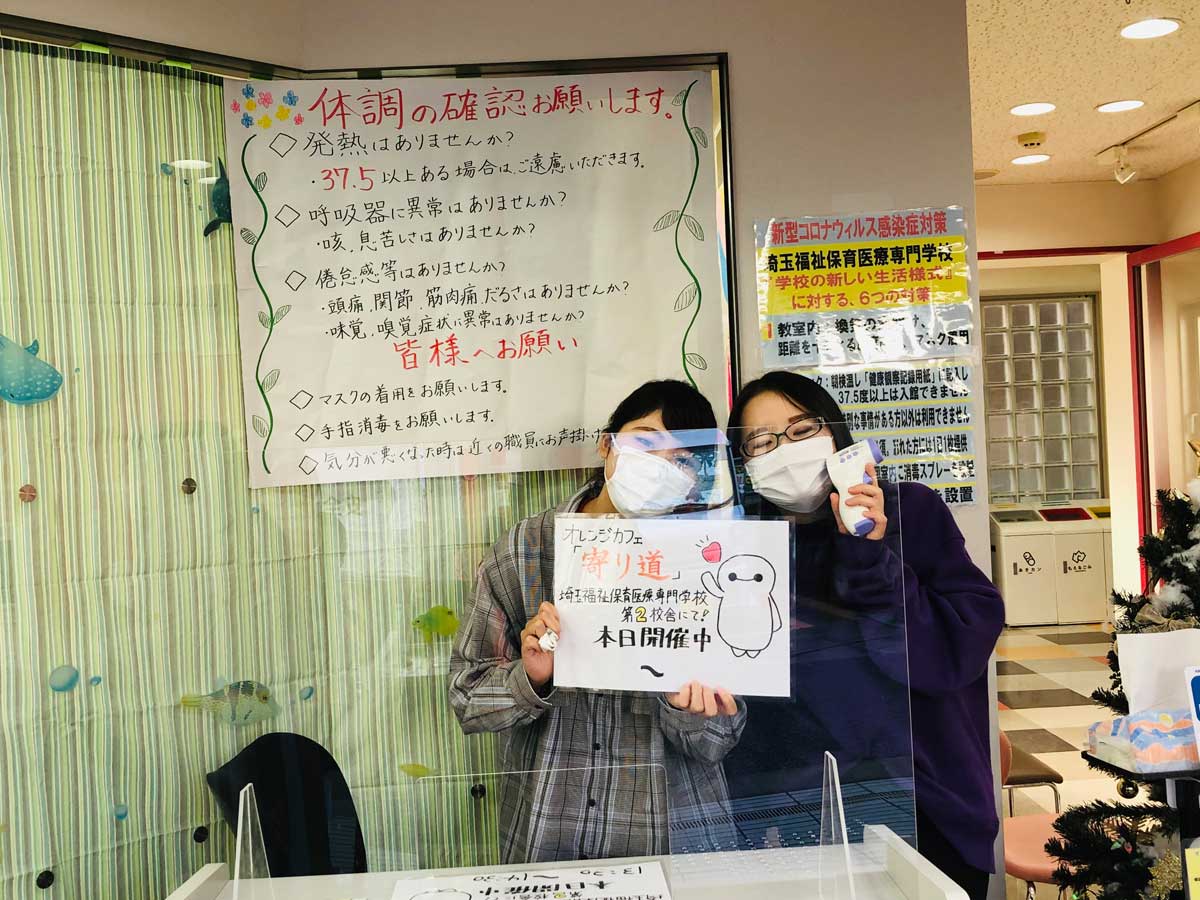 体調の確認お願いします。
◇発熱はありませんか?
・37.5以上ある場合は、ご遠慮いただきます。
◇呼吸器に異常はありませんか?
・咳、息苦しさはありませんか?
◇倦怠感等はありませんか?
・頭痛、関節、筋肉痛、だるさはありませんか?
・味覚、嗅覚症状に異常はありませんか?
皆様へお願い
◇マスクの着用をお願いします。
◇手指消毒をお願いします。
◇気分が悪くなった時は近くの職員にお声掛け
新型コロナウィルス感染症対策
埼玉福祉保育医療専門学校
『学校の新しい生活様式』
に対する、6つの対策
1 教室内
マスク着用
検温し「健康観察記録用紙」に記入し
37.5度以上は入館できません
な事情がある方以外は利用できません
忘れた方には1日1枚提供
に消毒スプレーを設定
を設置
オレンジカフェ
「寄り道」
埼玉福祉保育医療専門学校
第2校舎にて!
本日開催中
~
あきカン
もえるごみ
13:30~14:30
本日開催中